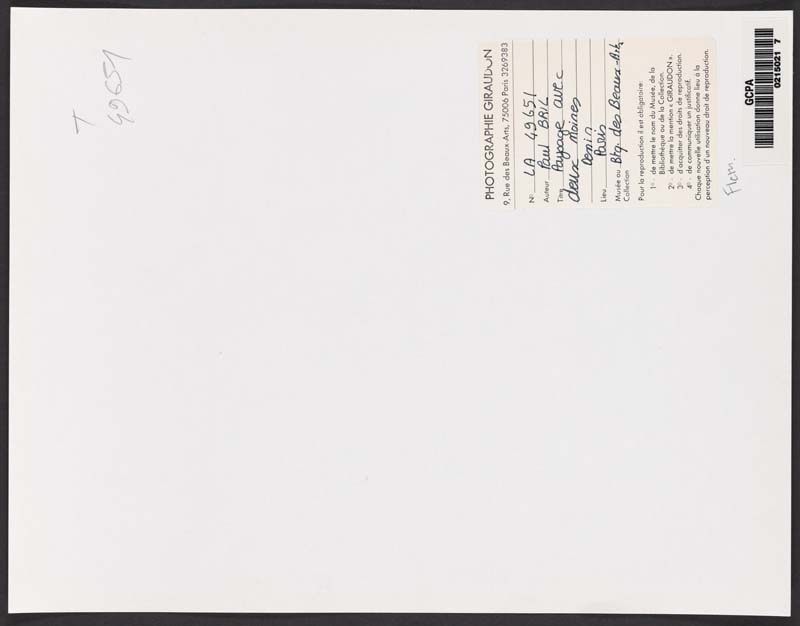 T
49651
PHOTOGRAPHIE GIRAUDON
9, Rue des Beaux-Arts, 75006 Paris 3269383
N° LA 49651
Auteur Paul BRIL
Titre Paysage avec
deux moines
Dessin
Lieu Paris
Musée ou Btq. des Beaux-Arts
Collection
Pour la reproduction il est obligatoire:
1° - de mettre le nom du Musée, de la
Bibliothèque ou de la Collection.
2° - de mettre la mention « GIRAUDON ».
3° - d'acquitter des droits de reproduction.
4° - de communiquer un justificatif.
Chaque nouvelle utilisation donne lieu à la
perception d'un nouveau droit de reproduction.
Flem.
GCPA
0215021 7